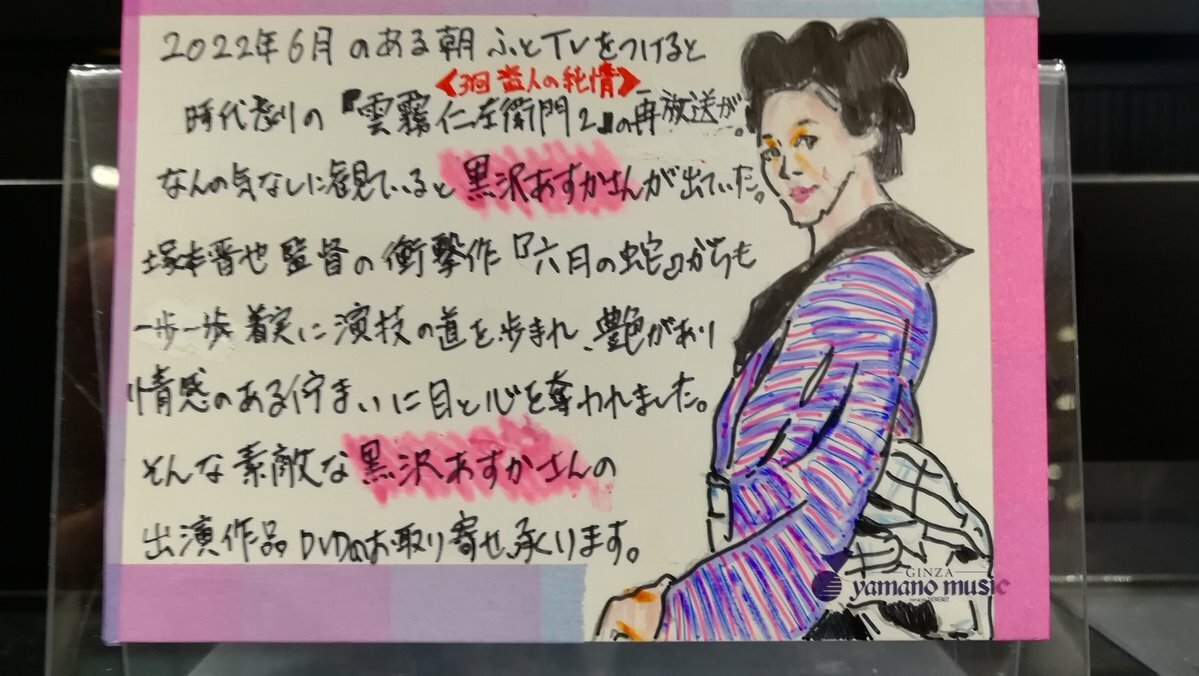 2022年6月のある朝ふとTVをつけると
《3回 盗人の純情》
時代劇の『雲霧仁左衛門2』の再放送が。
なんの気なしに観ていると黒沢あすかさんが出ていた。
塚本晋也監督の衝撃作『六月の蛇』からも
一歩一歩着実に演技の道を歩まれ、艶があり
情感のある佇まいに目と心を奪われました。
そんな素敵な黒沢あすかさんの
出演作品DVDのお取り寄せ、承ります。
GINZA
yamano music
SINCE 1892